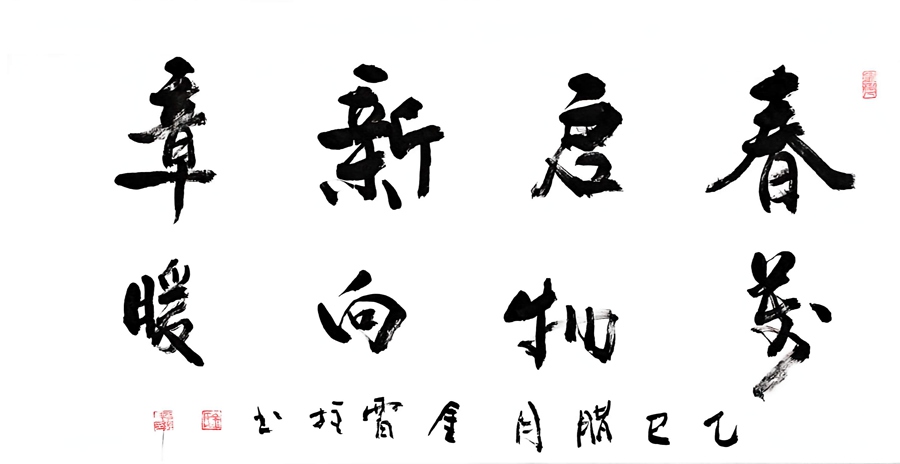 春启新章
萬物向暖
乙巳腊月金霄柱书